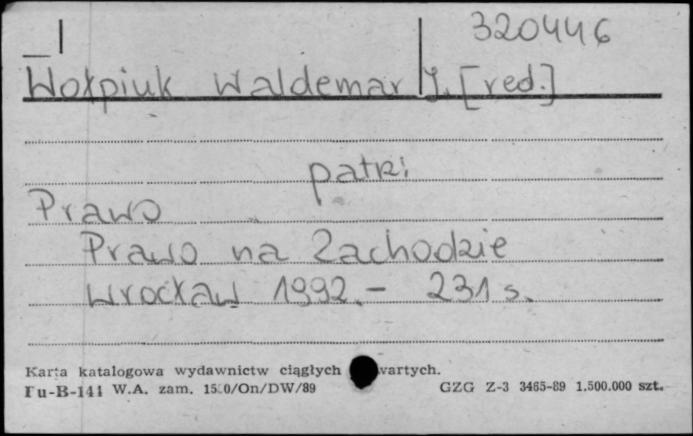 320446
Wołpiuk Waldemar J. [red.]
patrz:
Prawo
Prawo na Zachodzie
Wrocław 1992.- 231 s.
Karta katalogowa wydawnictw ciągłych wartych.
Pu-B-141 W.A. zam. 15 0/On/DW/89 GZG Z-3 3465-89 1.500.000 szt.